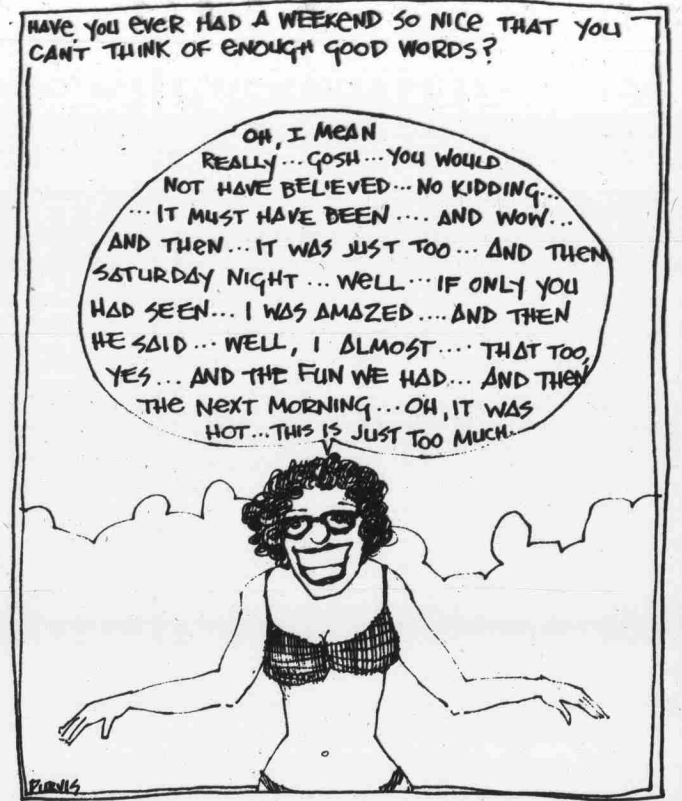 HAVE YOU EVER HAD A WEEKEND SO NICE THAT YOU
CAN'T THINK OF ENOUGH GOOD WORDS?
OH, I MEAN
REALLY... GOSH... YOU WOULD
NOT HAVE BELIEVED... NO KIDDING...
... IT MUST HAVE BEEN .... AND WOW...
AND THEN... IT WAS JUST TOO... AND THEN
SATURDAY NIGHT ... WELL... IF ONLY YOU
HAD SEEN... I WAS AMAZED .... AND THEN
HE SAID... WELL, I ALMOST .... THAT TOO,
YES... AND THE FUN WE HAD... AND THEN
THE NEXT MORNING... OH, IT WAS
HOT... THIS IS JUST TOO MUCH.
PURVIS